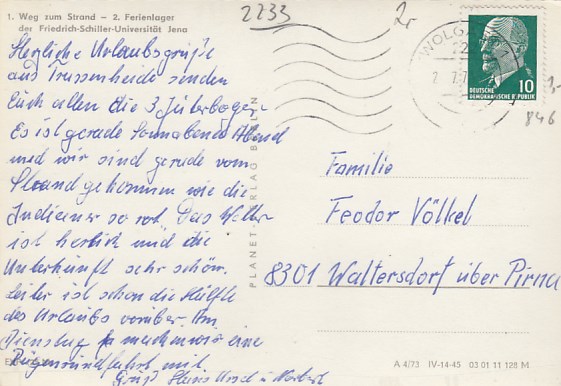 1. Weg zum Strand – 2. Ferienlager
der Friedrich-Schiller-Universität Jena
2233
Herzliche Urlaubsgrüße
aus Trassenheide senden
Euch allen die 3 Jüterboger.
Es ist gerade Sonnabend Abend
und wir sind gerade vom
Strand gekommen wie die
Indianer so rot. Das Wetter
ist herrlich und die
Unterkunft sehr schön.
Leider ist schon die Hälfte
des Urlaubs vorüber. Am
Dienstag machen wir eine
Rügenrundfahrt mit.
Grüße Hans Ursel u. Norbert
PLANET-VERLAG BERLIN
WOLGAST
10
DEUTSCHE
DEMOKRATISCHE REPUBLIK
1,-
846
Familie
Feodor Völkel
8301 Waltersdorf über Pirna
A 4/73 IV-14-45 03 01 11 128 M